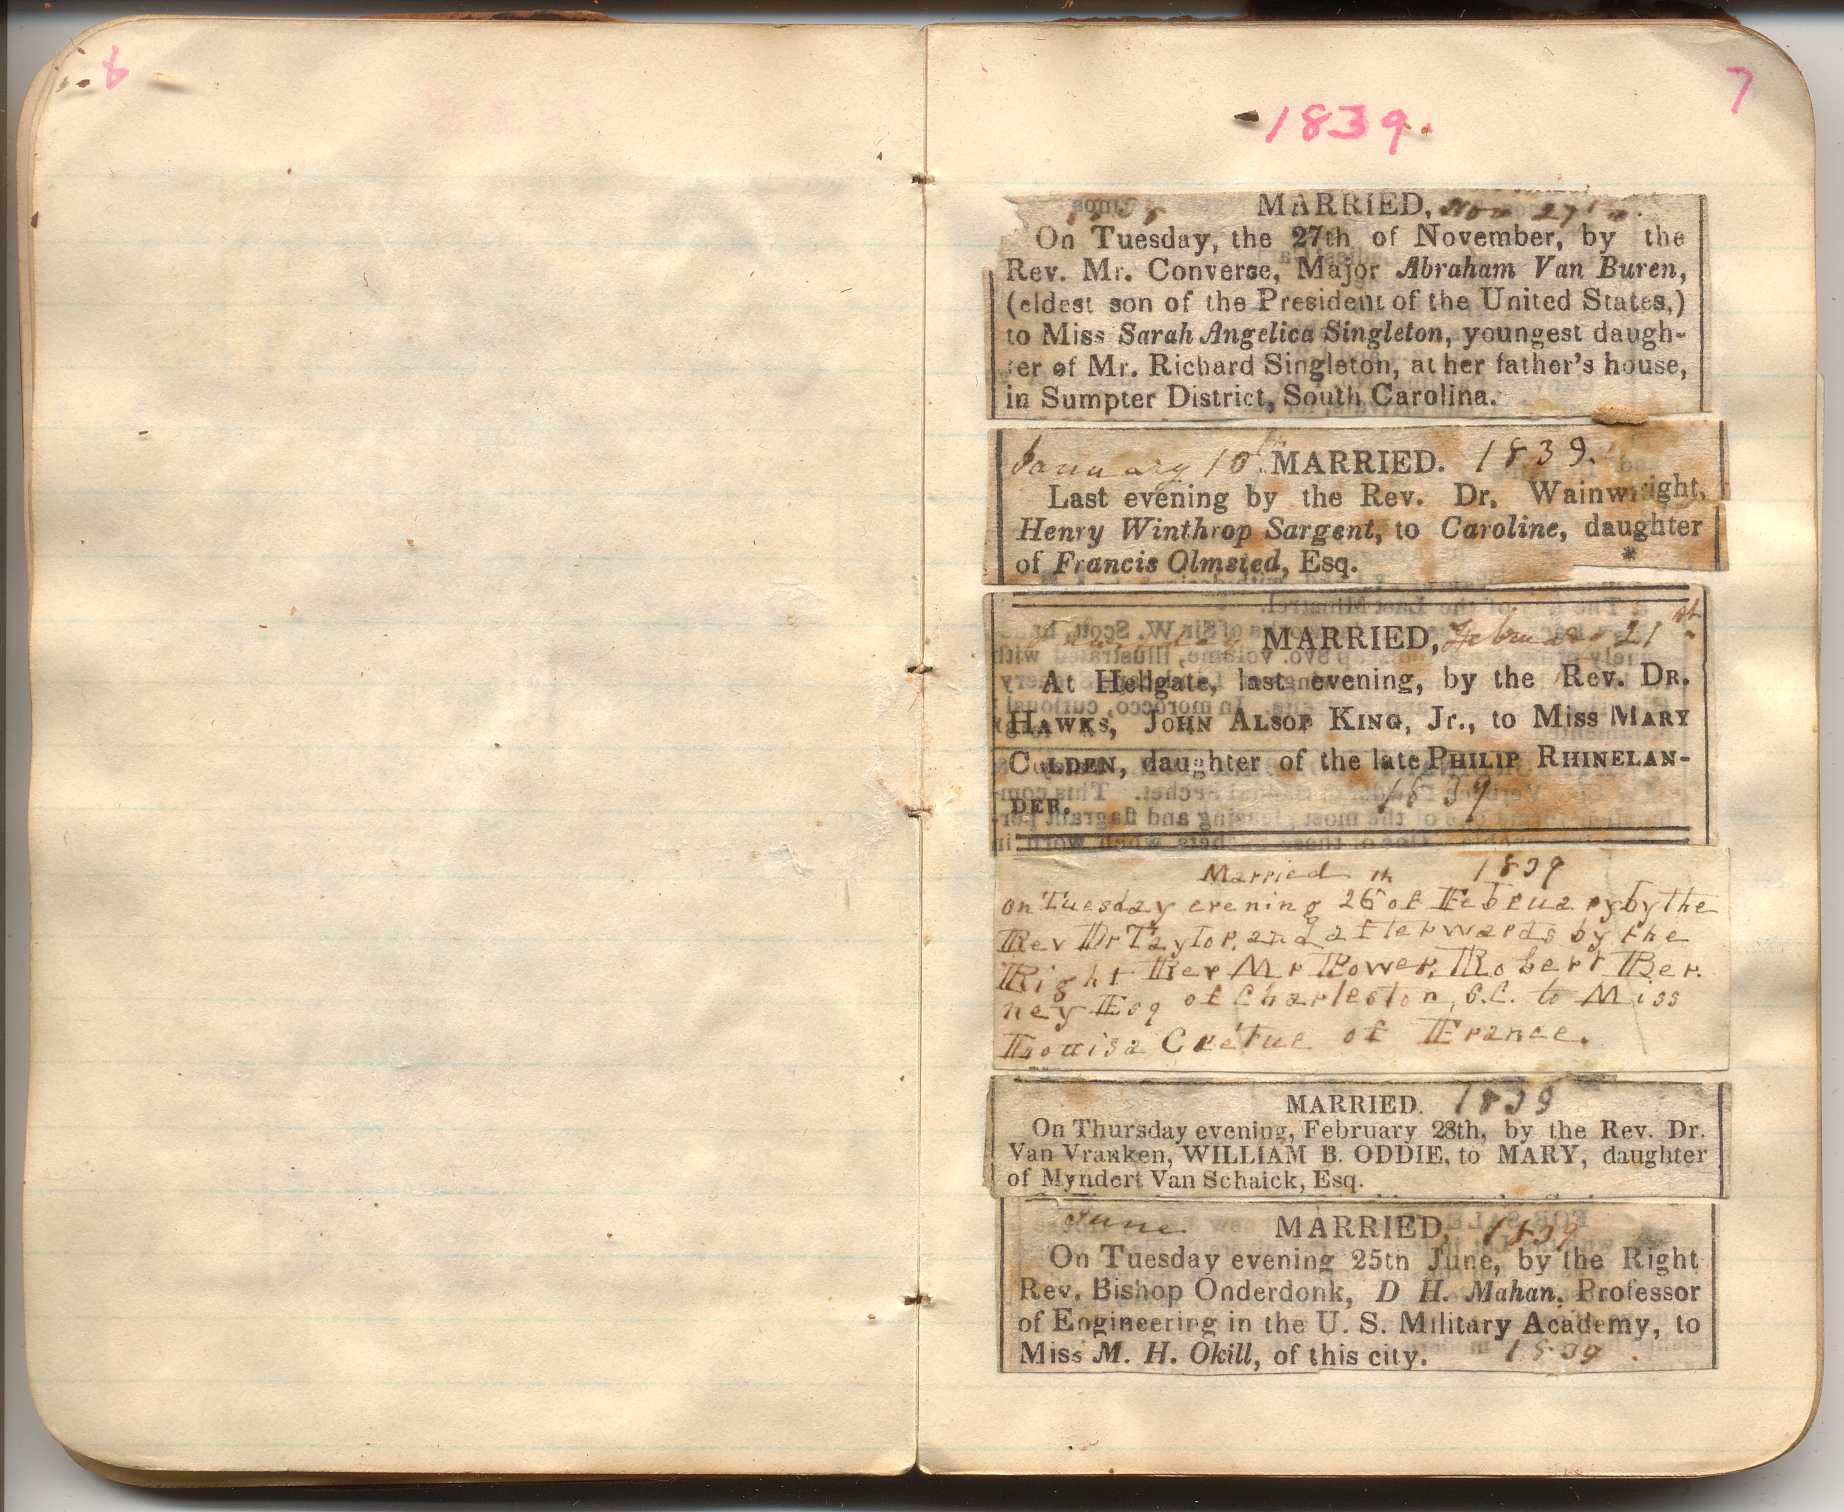 8
7
1839.
MARRIED, Nov 27th.
On Tuesday, the 27th of November, by the
Rev. Mr. Converse, Major Abraham Van Buren,
(eldest son of the President of the United States,)
to Miss Sarah Angelica Singleton, youngest daugh-
ter of Mr. Richard Singleton, at her father's house,
in Sumpter District, South Carolina.
January 10th MARRIED. 1839.
Last evening by the Rev. Dr. Wainwright,
Henry Winthrop Sargent, to Caroline, daughter
of Francis Olmsted, Esq. *
MARRIED, February 21st
At Hellgate, last evening, by the Rev. DR.
HAWKS, JOHN ALSOP KING, Jr., to Miss MARY
COLDEN, daughter of the late PHILIP RHINELAN-
DER. 1839
Married th 1839
on Tuesday evening 26 of February by the
Rev Dr Taylor, and afterwards by the
Right Rev Mr Power, Robert Ber.
ney Esq of Charleston, S.C. to Miss
Louisa of France.
MARRIED. 1839
On Thursday evening, February 28th, by the Rev. Dr.
Van Vranken, WILLIAM B. ODDIE, to MARY, daughter
of Myndert Van Schaick, Esq.
June MARRIED, 1839
On Tuesday evening 25th June, by the Right
Rev. Bishop Onderdonk, D H. Mahan, Professor
of Engineering in the U. S. Military Academy, to
Miss M. H. Okill, of this city. 1839.